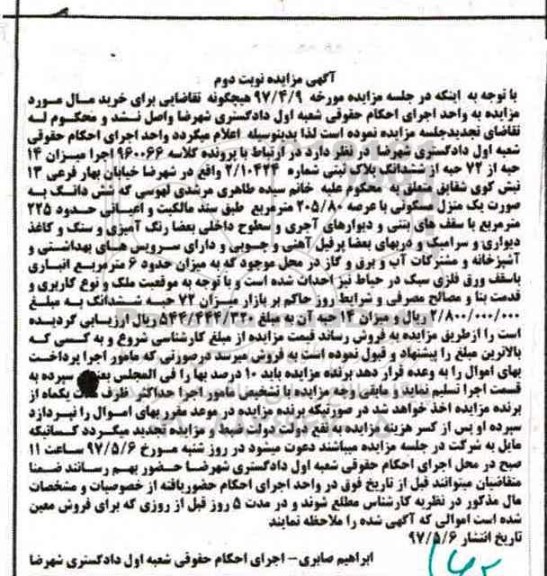 آگهی مزایده نوبت دوم
با توجه به اینکه در جلسه مزایده مورخه ۹۷/۴/۹ هیچگونه تقاضایی برای خرید مال مورد
مزایده به واحد اجرای احکام حقوقی شعبه اول دادگستری شهرضا واصل نشد و محکوم له
تقاضای تجدیدجلسه مزایده نموده است لذا بدینوسیله اعلام میگردد واحد اجرای احکام حقوقی
شعبه اول دادگستری شهرضا در نظر دارد در ارتباط با پرونده کلاسه ۹۶۰۰۶۶ اجرا میزان ۱۴
حبه از ۷۲ حبه از ششدانگ پلاک ثبتی شماره ۲/۱۰۴۲۴ واقع در شهرضا خیابان بهار فرعی ۱۳
نبش کوی شقایق متعلق به محکوم علیه خانم سیده طاهری مرشدی لهوسی که شش دانگ به
صورت یک منزل مسکونی با عرصه ۲۰۵/۸۰ مترمربع طبق سند مالکیت و اعیانی حدود ۲۲۵
مترمربع با سقف های بتنی و دیوارهای آجری و سطوح داخلی بعضا رنگ آمیزی و سنگ و کاغذ
دیواری و سرامیک و دربهای بعضا پرفیل آهنی و چوبی و دارای سرویس های بهداشتی و
آشپزخانه و مشترکات آب و برق و گاز در محل موجود که به میزان حدود ۶ مترمربع انباری
باسقف ورق فلزی سبک در حیاط نیز احداث شده است و با توجه به موقعیت ملک و نوع کاربری و
قدمت بنا و مصالح مصرفی و شرایط روز حاکم بر بازار میزان ۷۲ حبه ششدانگ به مبلغ
۲/۸۰۰/۰۰۰/۰۰۰ ریال و میزان ۱۴ حبه آن به مبلغ ۵۴۴/۴۴۴/۳۲۰ ریال ارزیابی گردیده
است را ازطریق مزایده به فروش رساند قیمت مزایده از مبلغ کارشناسی شروع و به کسی که
بالاترین مبلغ را پیشنهاد و قبول نموده است به فروش میرسد درصورتی که مامور اجرا پرداخت
بهای اموال را به وعده قرار دهد برنده مزایده باید ۱۰ درصد بها را فی المجلس سپرده به
قسمت اجرا تسلیم نماید و مابقی وجه مزایده با تشخیص مامور اجرا حداکثر ظرف مدت یکماه از
برنده مزایده اخذ خواهد شد در صورتیکه برنده مزایده در موعد مقرر بهای اموال را نپردازد
سپرده او پس از کسر هزینه مزایده به نفع دولت ضبط و مزایده تجدید میگردد کسانیکه
مایل به شرکت در جلسه مزایده میباشند دعوت میشود در روز شنبه مورخ ۹۷/۵/۶ ساعت ۱۱
صبح در محل اجرای احکام حقوقی شعبه اول دادگستری شهرضا حضور بهم رسانند ضمنا
متقاضیان میتوانند قبل از تاریخ فوق در واحد اجرای احکام حضوریافته از خصوصیات و مشخصات
مال مذکور در نظریه کارشناس مطلع شوند و در مدت ۵ روز قبل از روزی که برای فروش معین
شده است اموالی که آگهی شده را ملاحظه نمایند
تاریخ انتشار ۹۷/۵/۶
ابراهیم صابری- اجرای احکام حقوقی شعبه اول دادگستری شهرضا